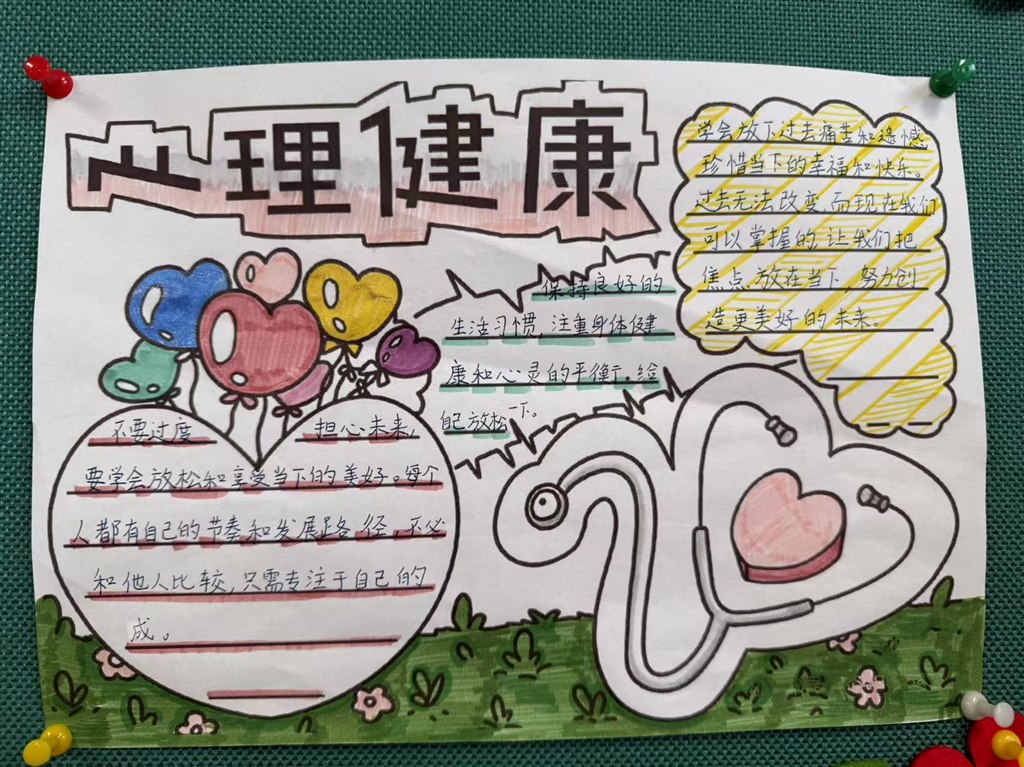 心理健康
学会放下过去痛苦和遗憾
珍惜当下的幸福和快乐。
过去无法改变,而现在我们
可以掌握的,让我们把
焦点放在当下,努力创
造更美好的未来。
保持良好的
生活习惯,注重身体健
康和心灵的平衡。给
自己放松一下。
不要过度 担心未来,
要学会放松和享受当下的美好。每个
人都有自己的节奏和发展路径,不必
和他人比较,只需专注于自己的
成。